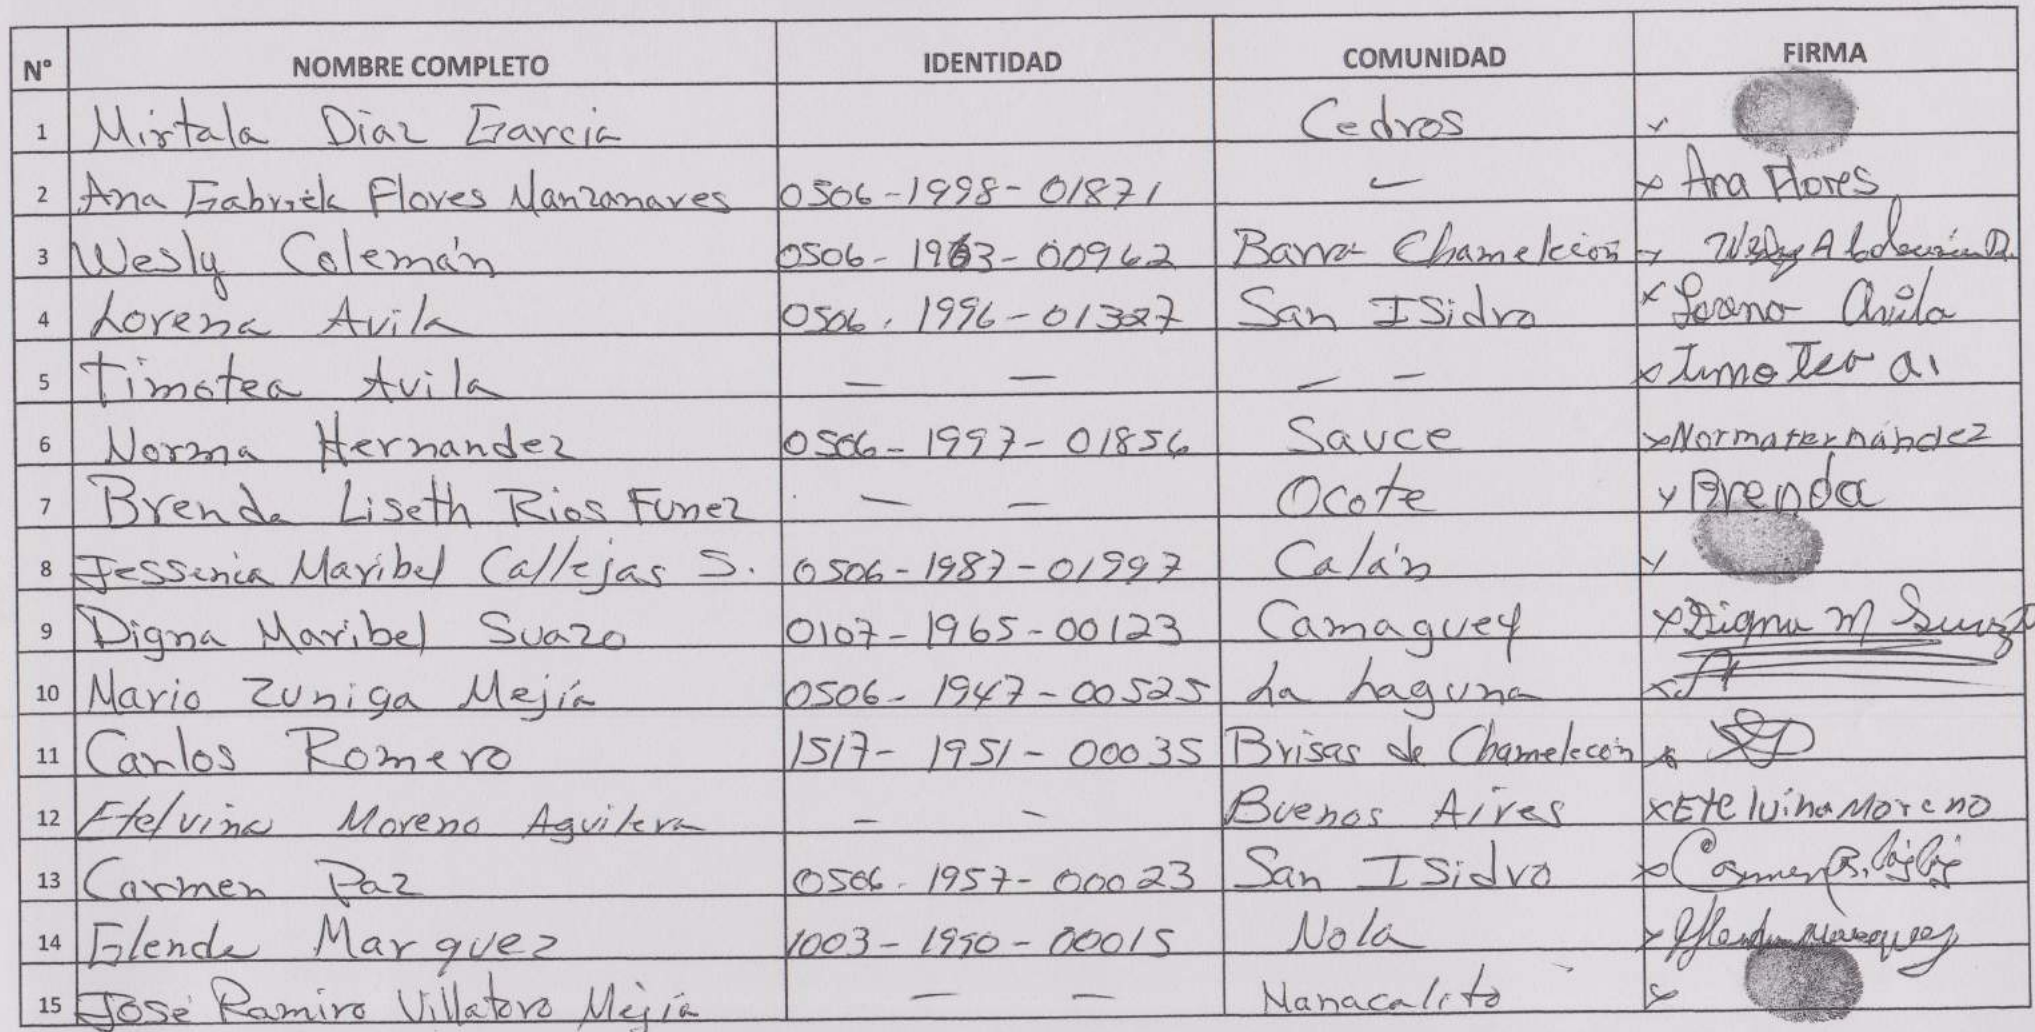 N° NOMBRE COMPLETO IDENTIDAD COMUNIDAD FIRMA
1 Mirtala Diaz Garcia Cedros x
2 Ana Gabriela Flores Manzanares 0506-1998-01871 — x Ana Flores
3 Wesly Colemán 0506-1963-00962 Barra Chamelecón x
4 Lorena Avila 0506-1996-01327 San Isidro x Lorena Avila
5 Timotea Avila — — — — x Timotea a.
6 Norma Hernandez 0506-1997-01856 Sauce x Norma Hernández
7 Brenda Liseth Rios Funez — — Ocote x Brenda
8 Jessenia Maribel Callejas S. 0506-1987-01997 Calán x
9 Digna Maribel Suazo 0107-1965-00123 Camaguey x Digna M Suazo
10 Mario Zuniga Mejía 0506-1947-00525 La Laguna x
11 Carlos Romero 1517-1951-00035 Brisas de Chamelecón x
12 Etelvina Moreno Aguilera — — Buenos Aires x Etelvina Moreno
13 Carmen Paz 0506-1957-00023 San Isidro x Carmen
14 Glenda Marquez 1003-1990-00015 Nola x Glenda Marquez
15 José Ramiro Villatoro Mejía — — Manacalito x